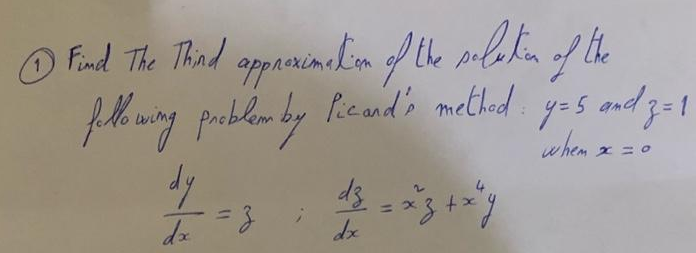 ① Find The Third approximation of the solution of the
following problem by Picard's method: y=5 and z=1
when x=0
dy/dx = z ; dz/dx = x²z + x⁴y